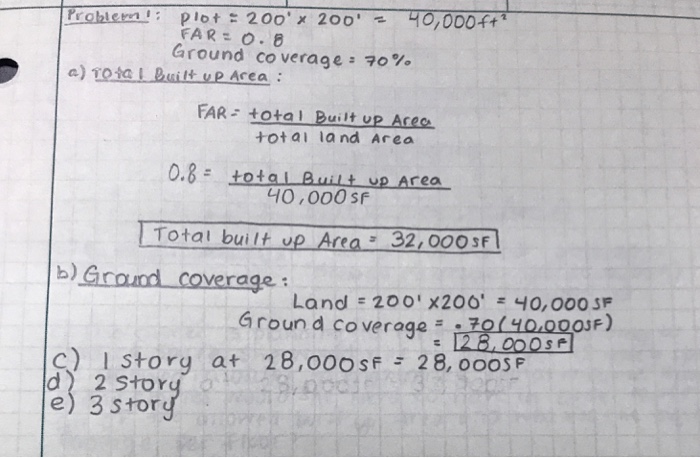 Problem 1: plot = 200' x 200' = 40,000 ft²
FAR = 0.8
Ground coverage = 70%
a) Total Built up Area :
FAR = total Built up Area
total land Area
0.8 = total Built up Area
40,000 SF
Total built up Area = 32,000 SF
b) Ground coverage :
Land = 200' x 200' = 40,000 SF
Ground coverage = .70(40,000SF)
= 28,000 SF
c) 1 story at 28,000 SF = 28,000SF
d) 2 story
e) 3 story